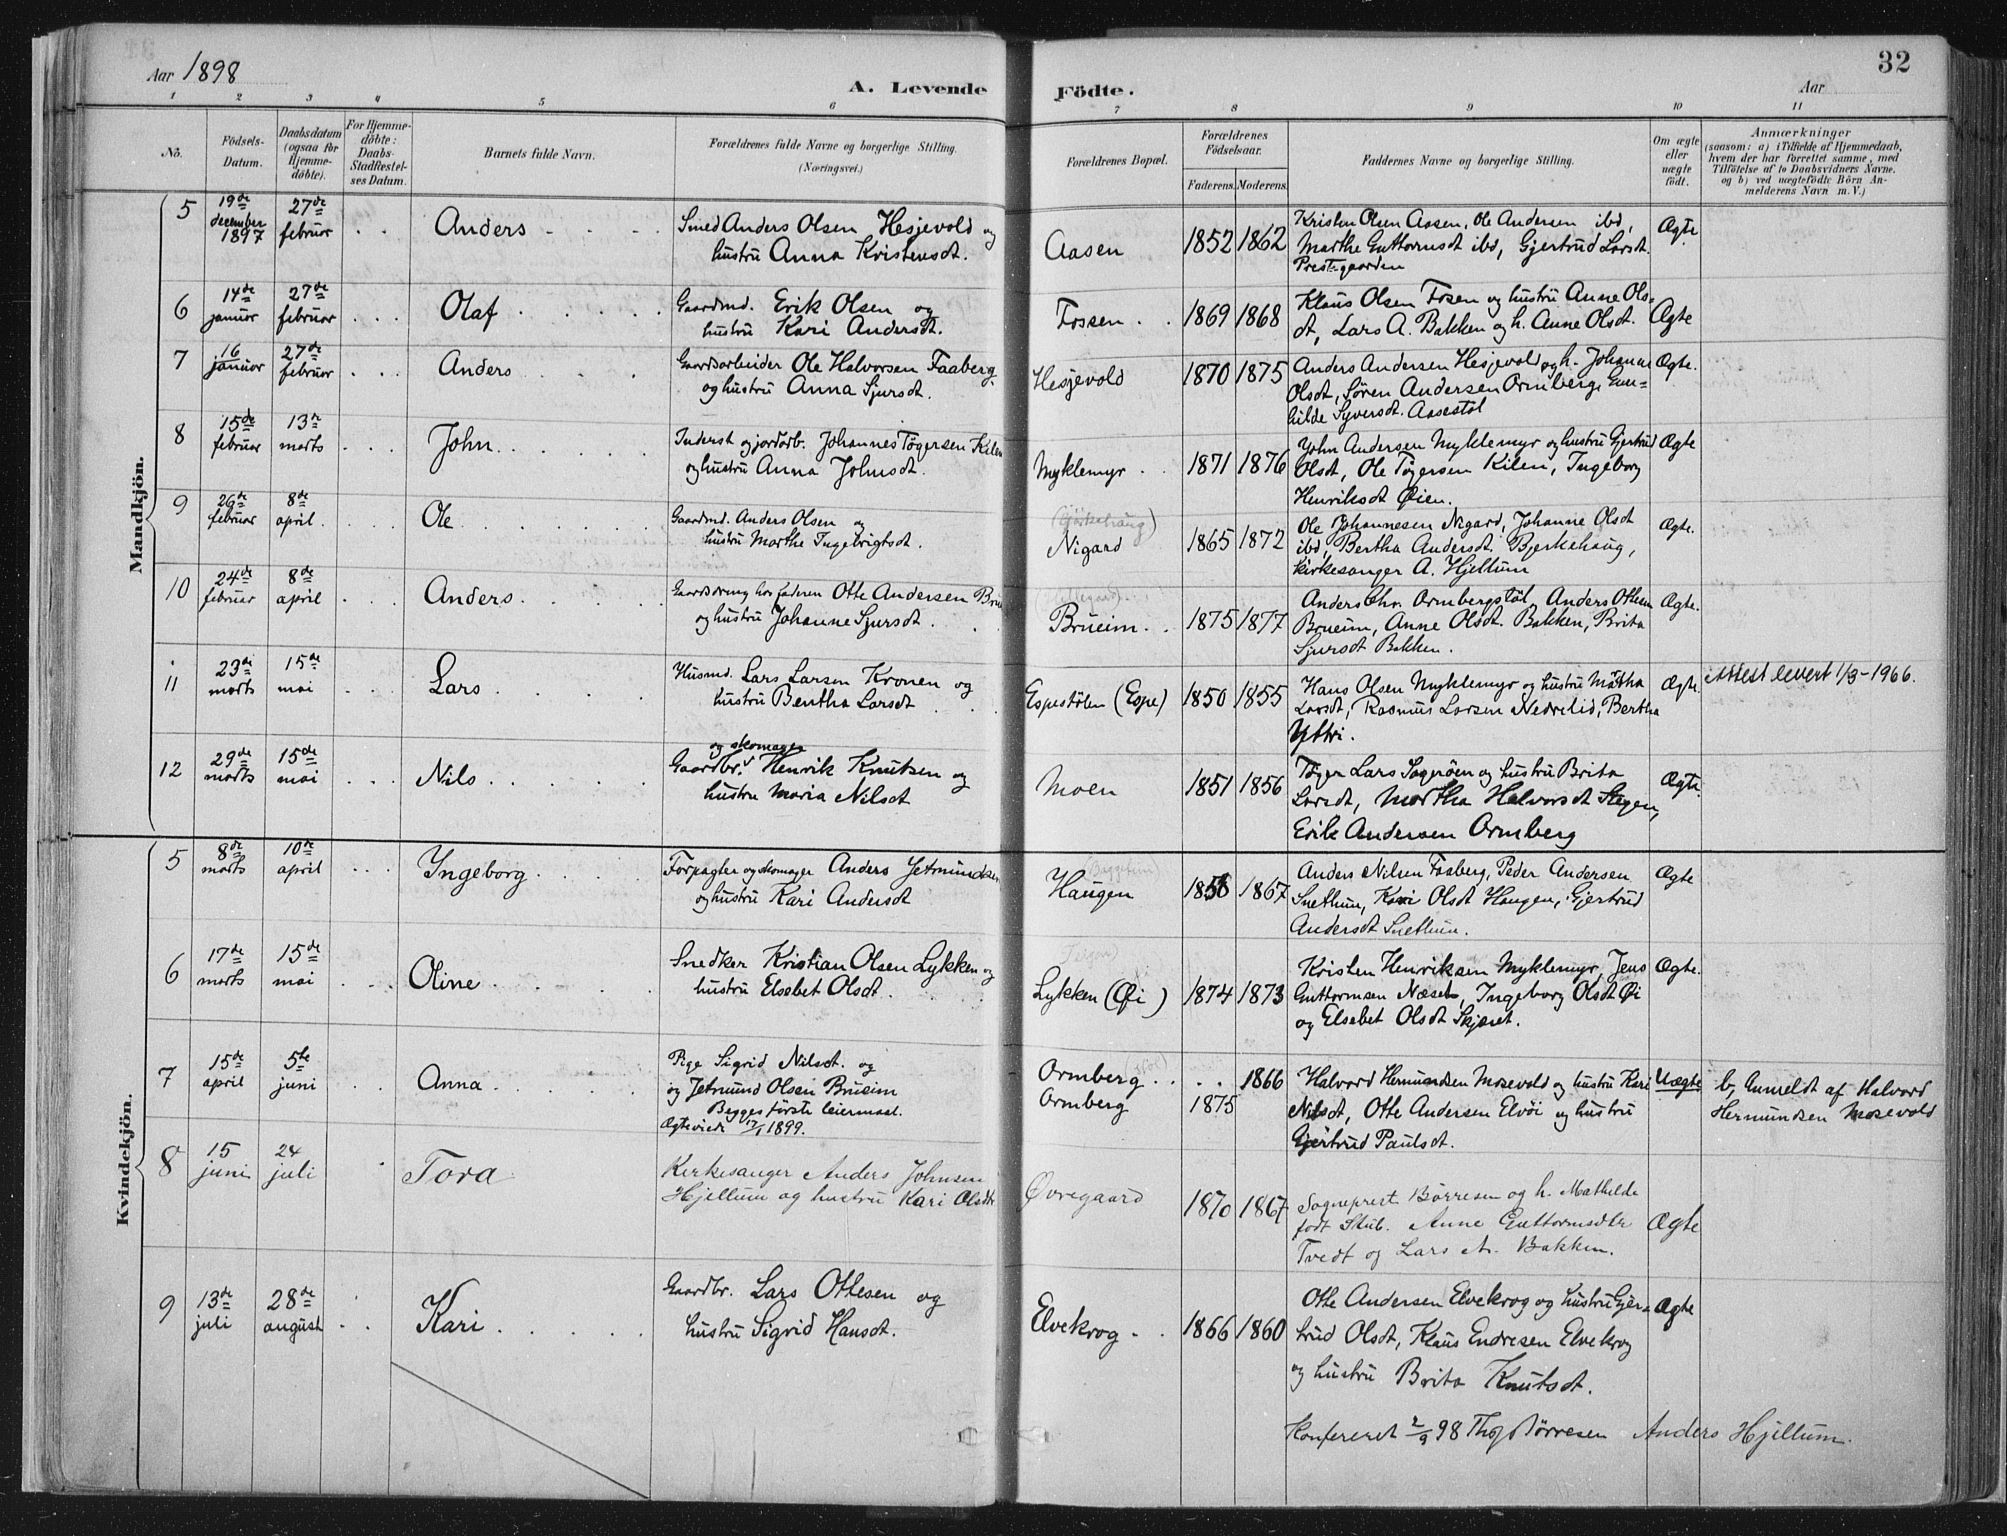 Aar 1898
A. Levende Födte.
Aar
32
1 2 3 4 5 6 7 8 9 10 11
No.
Födsels-Datum.
Daabsdatum (ogsaa for Hjemme-döbte).
For Hjemme-döbte: Daabs-Stadfæstel-ses Datum.
Barnets fulde Navn.
Forældrenes fulde Navne og borgerlige Stilling. (Næringsvei.)
Forældrenes Bopæl.
Forældrenes Födselsaar.
Faderens. Moderens.
Faddernes Navne og borgerlige Stilling.
Om ægte eller uægte födt.
Anmærkninger (saasom: a) i Tilfælde af Hjemmedaab, hvem der har forrettet samme, med Tilföielse af to Daabsvidners Navne. og b) ved uægtefödte Börn An-melderens Navn m. V.)
Mandkjön.
5 19de december 1897 27de februar Anders
Smed Anders Olsen Hesjevold og
hustru Anna Kristensdt.
Aasen 1852 1862
Kristen Olsen Aasen, Ole Andersen ibd,
Marthe Guttormsdt ibd, Gjertrud Larsdt.
Prestegaarden
Ægte
6 14de januar 27de februar Olaf
Gaardmd. Erik Olsen og
hustru Kari Andersdt.
Fossen 1869 1868
Klaus Olsen Fosen og hustru Anne Ols-
dt, Lars A. Bakken og h. Anne Olsdt.
Ægte
7 16 januar 27de februar Anders
Gaardsarbeider Ole Halvorsen Faaberg
og hustru Anna Sjursdt.
Hesjevold 1870 1875
Anders Andersen Hesjevold og h. Johanna
Olsdt, Søren Andersen Ormberg, Gun-
hilde Syversdt. Aasestøl
Ægte.
8 15de februar 13de marts John
Inderst og jordarb. Johannes Tøgersen Kilen
og hustru Anna Johnsdt.
Myklemyr 1871 1876
John Andersen Myklemyr og hustru Gjertrud
Olsdt, Ole Tøgersen Kilen, Ingeborg
Henriksdt Øien.
Ægte
9 26de februar 8de april Ole
Gaardmd. Anders Olsen og
hustru Marthe Ingebrigtsdt.
Nigard 1865 1872
Ole Johannesen Nigard, Johanne Olsdt
ibd, Bertha Andersdt. Bjerkehaug,
kirkesanger A. Hjellum
Ægte.
10 24de februar 8de april Anders
Gaardsdreng hos faderen Otte Andersen Bru
og hustru Johanne Sjursdt.
Brueim 1875 1877
Anders Chr. Ormbergstøl, Anders Ottesen
Brueim, Anne Olsdt. Bakken, Brita
Sjursdt Bakken.
Ægte.
11 23de marts 15de mai Lars
Husmd. Lars Larsen Kronen og
hustru Bertha Larsdt
Espestølen (Espe) 1850 1855
Hans Olsen Myklemyr og hustru Martha
Larsdt, Rasmus Larsen Nedrelid, Bertha
Yttri.
Ægte.
Attest levert 1/3-1966.
12 29de marts 15de mai Nils
og skomager
Gaardbr. Henrik Knutsen og
hustru Maria Nilsdt
Moen 1851 1856
Tøger Lars Sagerøen og hustru Brita
Larsdt, Martha Halvorsdt Stegen,
Erik Andersen Ormberg
Ægte.
Kvindekjön.
5 8de marts 10de april Ingeborg
Forpagter og skomager Anders Jetmundsen
og hustru Kari Andersdt
Haugen 1856 1867
Anders Nilsen Faaberg, Peder Andersen
Snethun, Kari Olsdt Haugen, Gjertrud
Andersdt Snethun.
Ægte
6 17de marts 15de mai Oline
Snedker Kristian Olsen Lykken og
hustru Elsebet Olsdt.
Lykken (Øi) 1874 1873
Kristen Henriksen Myklemyr, Jens
Guttormsen Næset, Ingeborg Olsdt Øi
og Elsebet Olsdt Skjæret.
Ægte.
7 15de april 5te juni Anna
Pige Sigrid Nilsdt. og
og Jetmund Olsen Brueim
Begges første leiermaal.
Ægteviede 12/1 1899.
Ormberg 1866
Ormberg 1875
Halvard Hermundsen Mosevold og hustru Kari
Nilsdt, Otte Andersen Elvøi og hustru
Gjertrud Paulsdt.
Uægte
b, Anmeldt af Halvard
Hermundsen Mosevold
8 15 juni 24 juli Tora
Kirkesanger Anders Johnsen
Hjellum og hustru Kari Olsdtr
Øvregaard 1870 1867
Sogneprest Børresen og h. Mathilde
født Stub. Anne Guttormsdtr
Tvedt og Lars A. Bakken.
Ægte
9 13de juli 28de august Kari
Gaardbr. Lars Ottesen og
hustru Sigrid Hansdt.
Elvekrog 1866 1860
Otte Andersen Elvekrog og hustru Gjer-
trud Olsdt, Klaus Endresen Elvekrog
og hustru Brita Knutsdt.
Ægte
Konfereret 2/9 98 Thof Børresen Anders Hjellum.